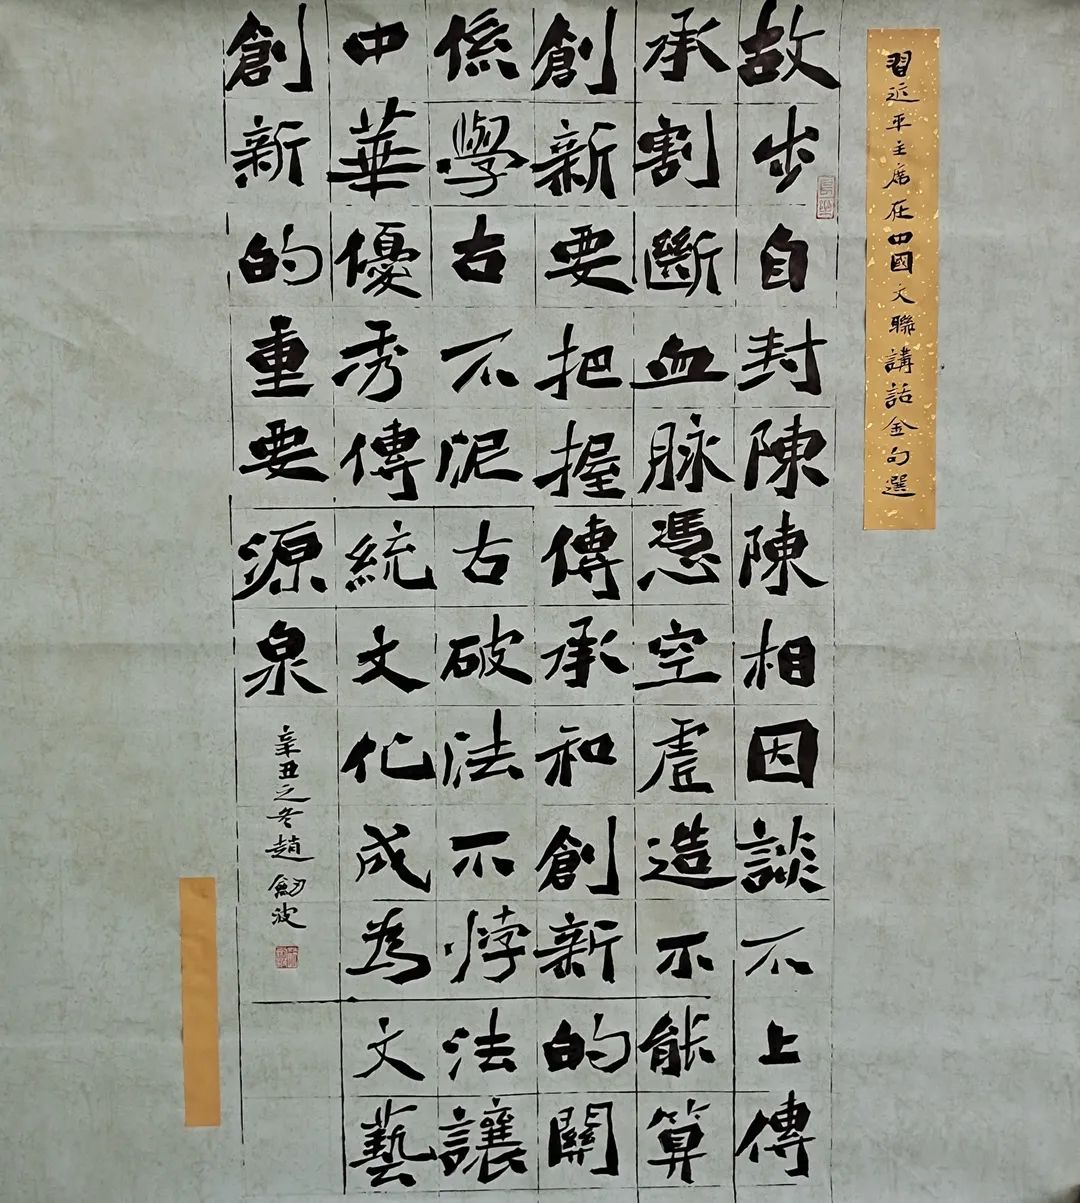 習近平主席在中國文聯講話金句選
故步自封陳陳相因談不上傳
承割斷血脉憑空虛造不能算
創新要把握傳承和創新的關
係學古不泥古破法不悖法讓
中華優秀傳統文化成為文藝
創新的重要源泉
辛丑之冬趙劍波